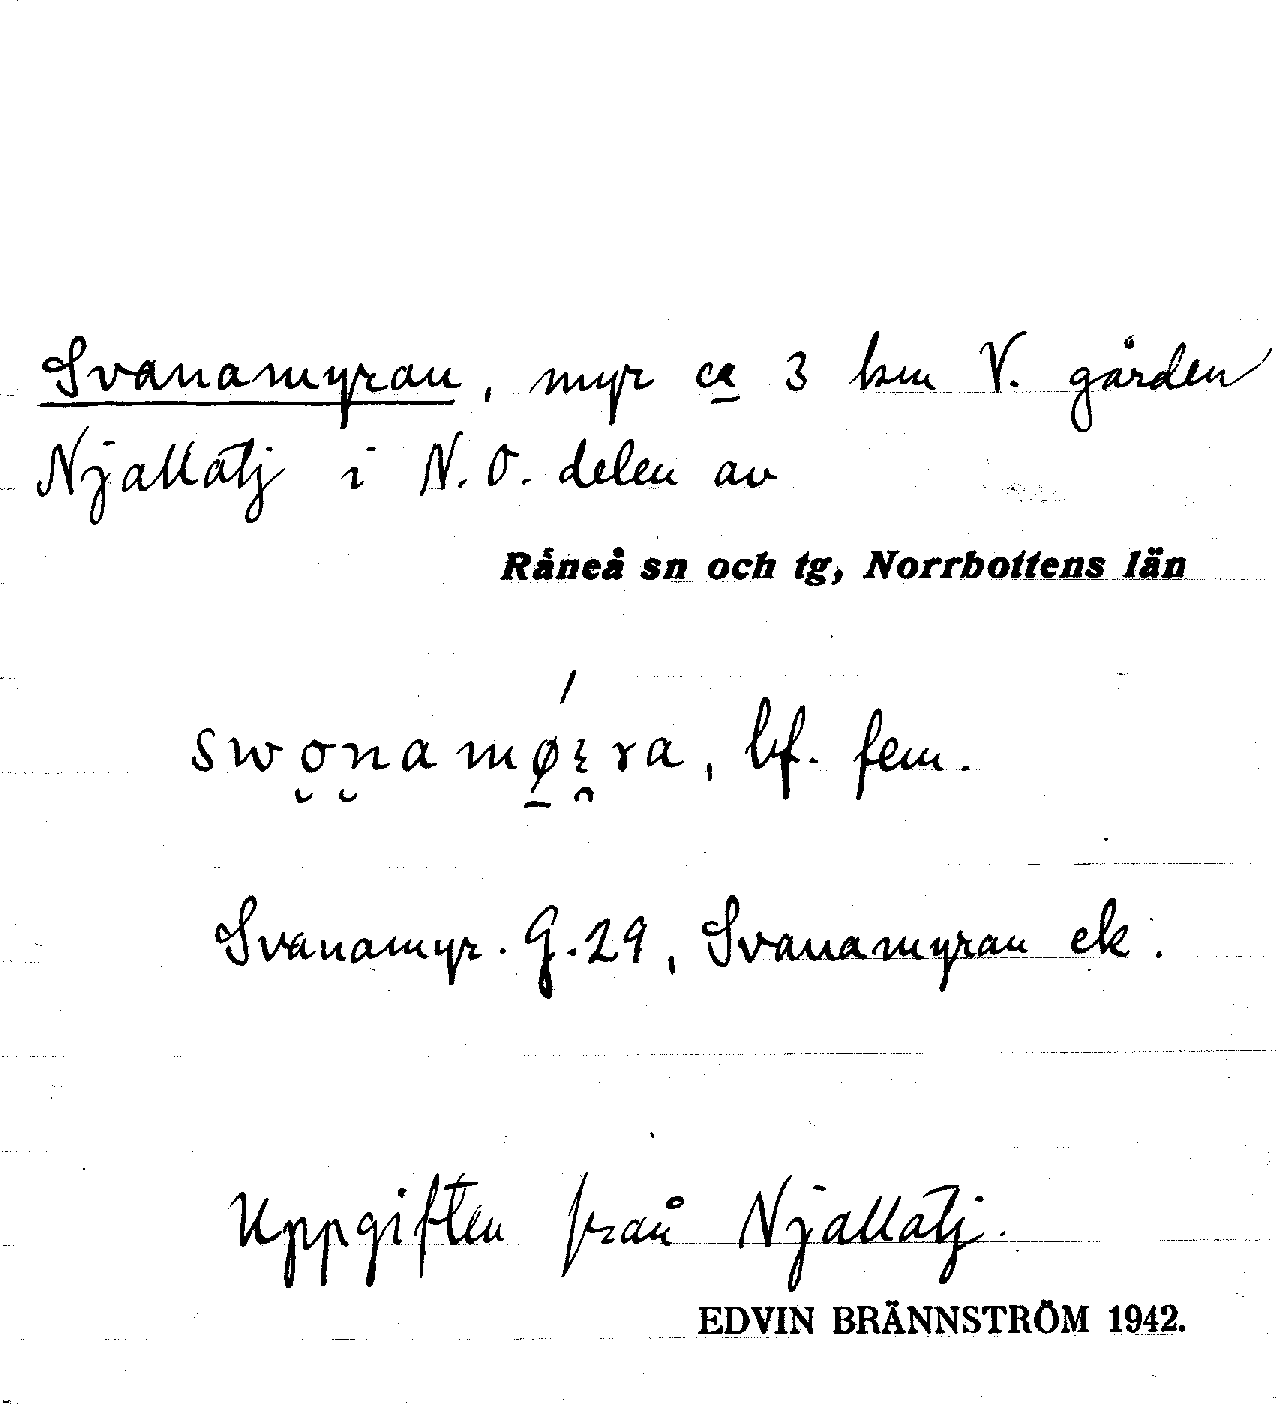 Svanamyran, myr ca 3 km V. gården
Njallatj i N.O. delen av
Råneå sn och tg, Norrbottens län
swo̮n̮amǿ̱ɛ̯ra, bf. fem.
Svanamyr. G.29, Svanamyran ek.
Uppgiften från Njallatj.
EDVIN BRÄNNSTRÖM 1942.